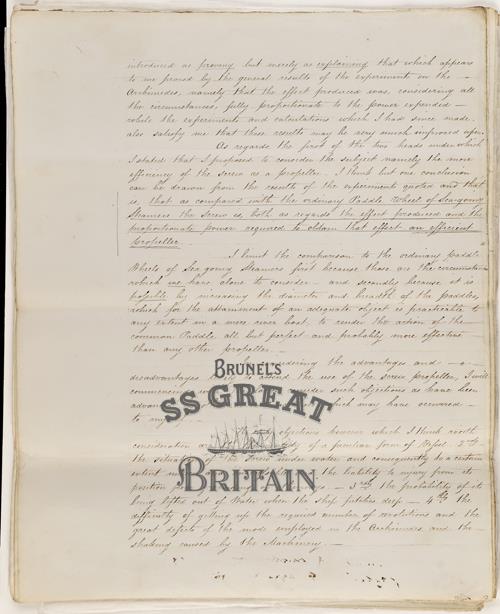 introduced as proving but merely as explaining that which appears
to me proved by the general results of the experiment on the
Archimedes, namely that the effect produced was, considering all
the circumstances, fully proportionate to the power expended –
while the experiments and calculations which I had since made
also satisfy me that these results may be very much improved upon.
As regards the first of the two heads under which
I stated that I proposed to consider the subject namely the mere
efficiency of the screw as a propeller. I think but one conclusion
can be drawn from the results of the experiment quoted and that
is, that as compared with the ordinary Paddle Wheel of Sea-going
Steamers the screw is, both as regards the effect produced and the
proportionate power required to obtain that effect an efficient
propeller.
I limit the comparison to the ordinary paddle
Wheels of Sea going Steamers first because those are the circumstances
which we have alone to consider – and secondly because it is
possible by increasing the diameter and breadth of the paddles,
which for the attainment of an adequate object is practicable to
any extent in a mere river boat, to render the action of the
common Paddle all but perfect and probably more effective
than any other propeller. –
considering the advantages and
disadvantages attend the use of the screw propeller, I will
commencing such objections as have been
advan which may have occurred
to my
BRUNEL'S
SS GREAT
BRITAIN
objections however which I think worth
consideration of a familiar form of Vessel 2nd
the situation screw under water and consequently to a certain
extent the liability to injury from its
position – 3rd the probability of its
being lifted out of Water when the ship pitches deep – 4th the
difficulty of getting up the required number of revolutions and the
great defects of the mode employed in the Archimedes and the
shaking caused by the Machinery. –